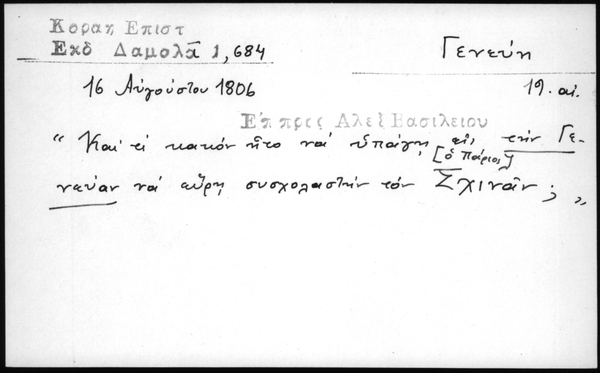 Κοραη Επιστ
Εκδ Δαμαλᾶ 1,684
Γενεύη
16 Αὐγούστου 1806
19. αἰ.
Ἐπ προς Αλεξ Βασιλειου
“ Καὶ τί κακὸν ἦτο νὰ ὑπάγῃ εἰς τὴν Γε-
[ὁ Πάριος]
νεύαν νὰ εὕρῃ συσχολαστὴν τὸν Σχινᾶν ; „